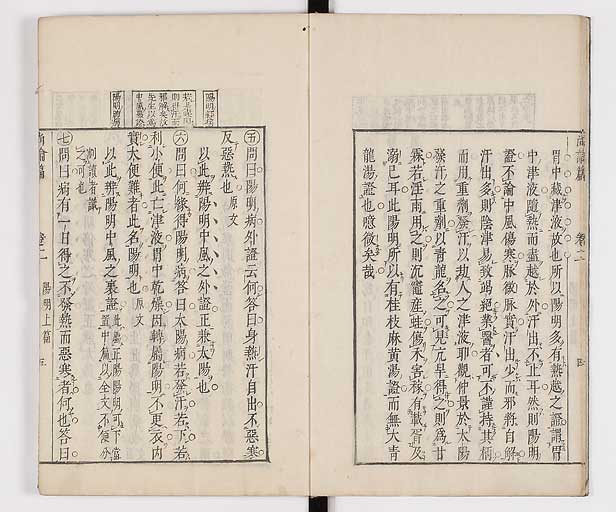 胃中藏津液故也所以陽明多有熱越之證謂胃
中津液隨熱而盡越於外汗出不止耳然則陽明
證不論中風傷寒脉微脉實汗出少而邪將自解
汗出多則陰津易致竭絕業醫者可不謹持其柄
而用重劑發汗以劫人之津液耶觀仲景於太陽
發汗之重劑以青龍名之可見亢旱得之則為甘
霖若淫雨用之則沉竈產蛙傷禾害稼有載胥及
溺已耳此陽明所以有桂枝麻黃湯證而無大青
龍湯證也噫微矣哉
尚論篇 卷二 四
㊄問曰陽明病外證云何答曰身熱汗自出不惡寒
反惡熱也原文
以此辨陽明中風之外證正兼太陽也
㊅問曰何緣得陽明病答曰太陽病若發汗若下若
利小便此亡津液胃中乾燥因轉屬陽明不更衣內
實大便難者此名陽明也原文
以此辨陽明中風之裏證此屬正陽陽明可下當
置中篇以全文不便分
割讀者識
之可也
㊆問曰病有一日得之不發熱而惡寒者何也答曰
尚論篇 卷二 陽明上篇 五